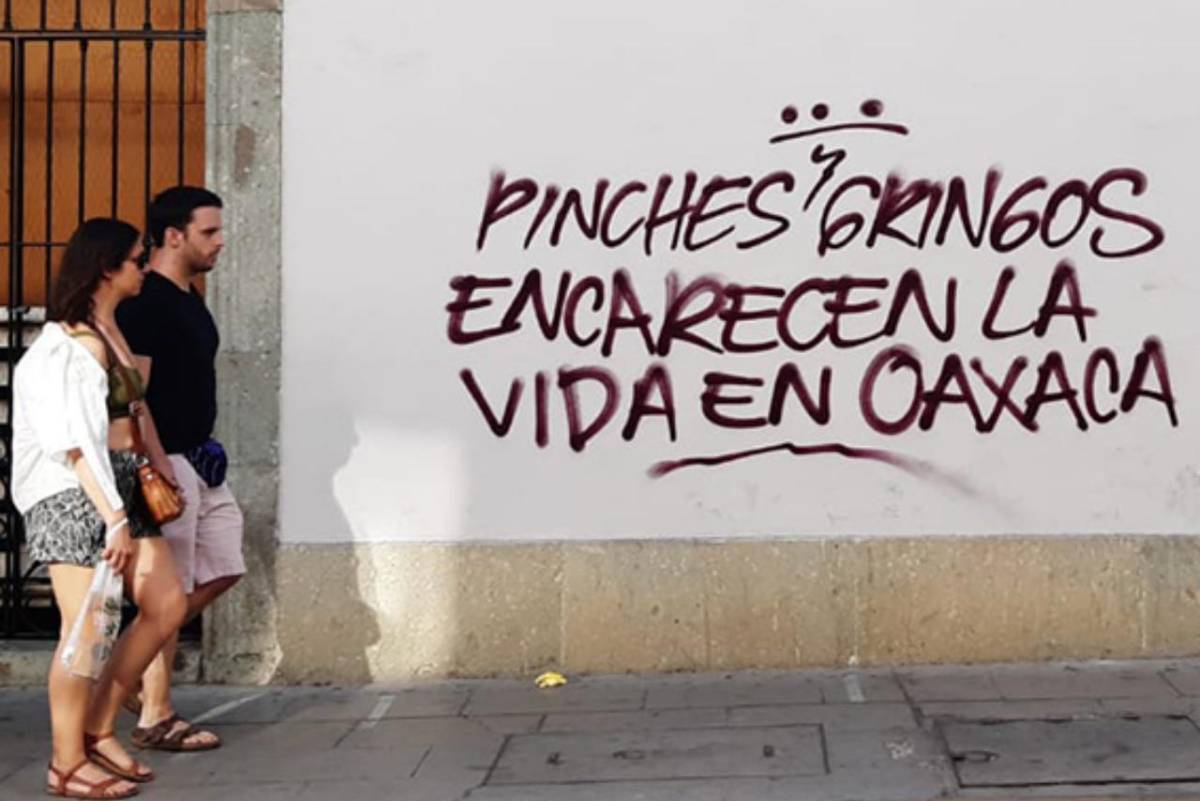 PINCHES GRINGOS
ENCARECEN LA
VIDA EN OAXACA